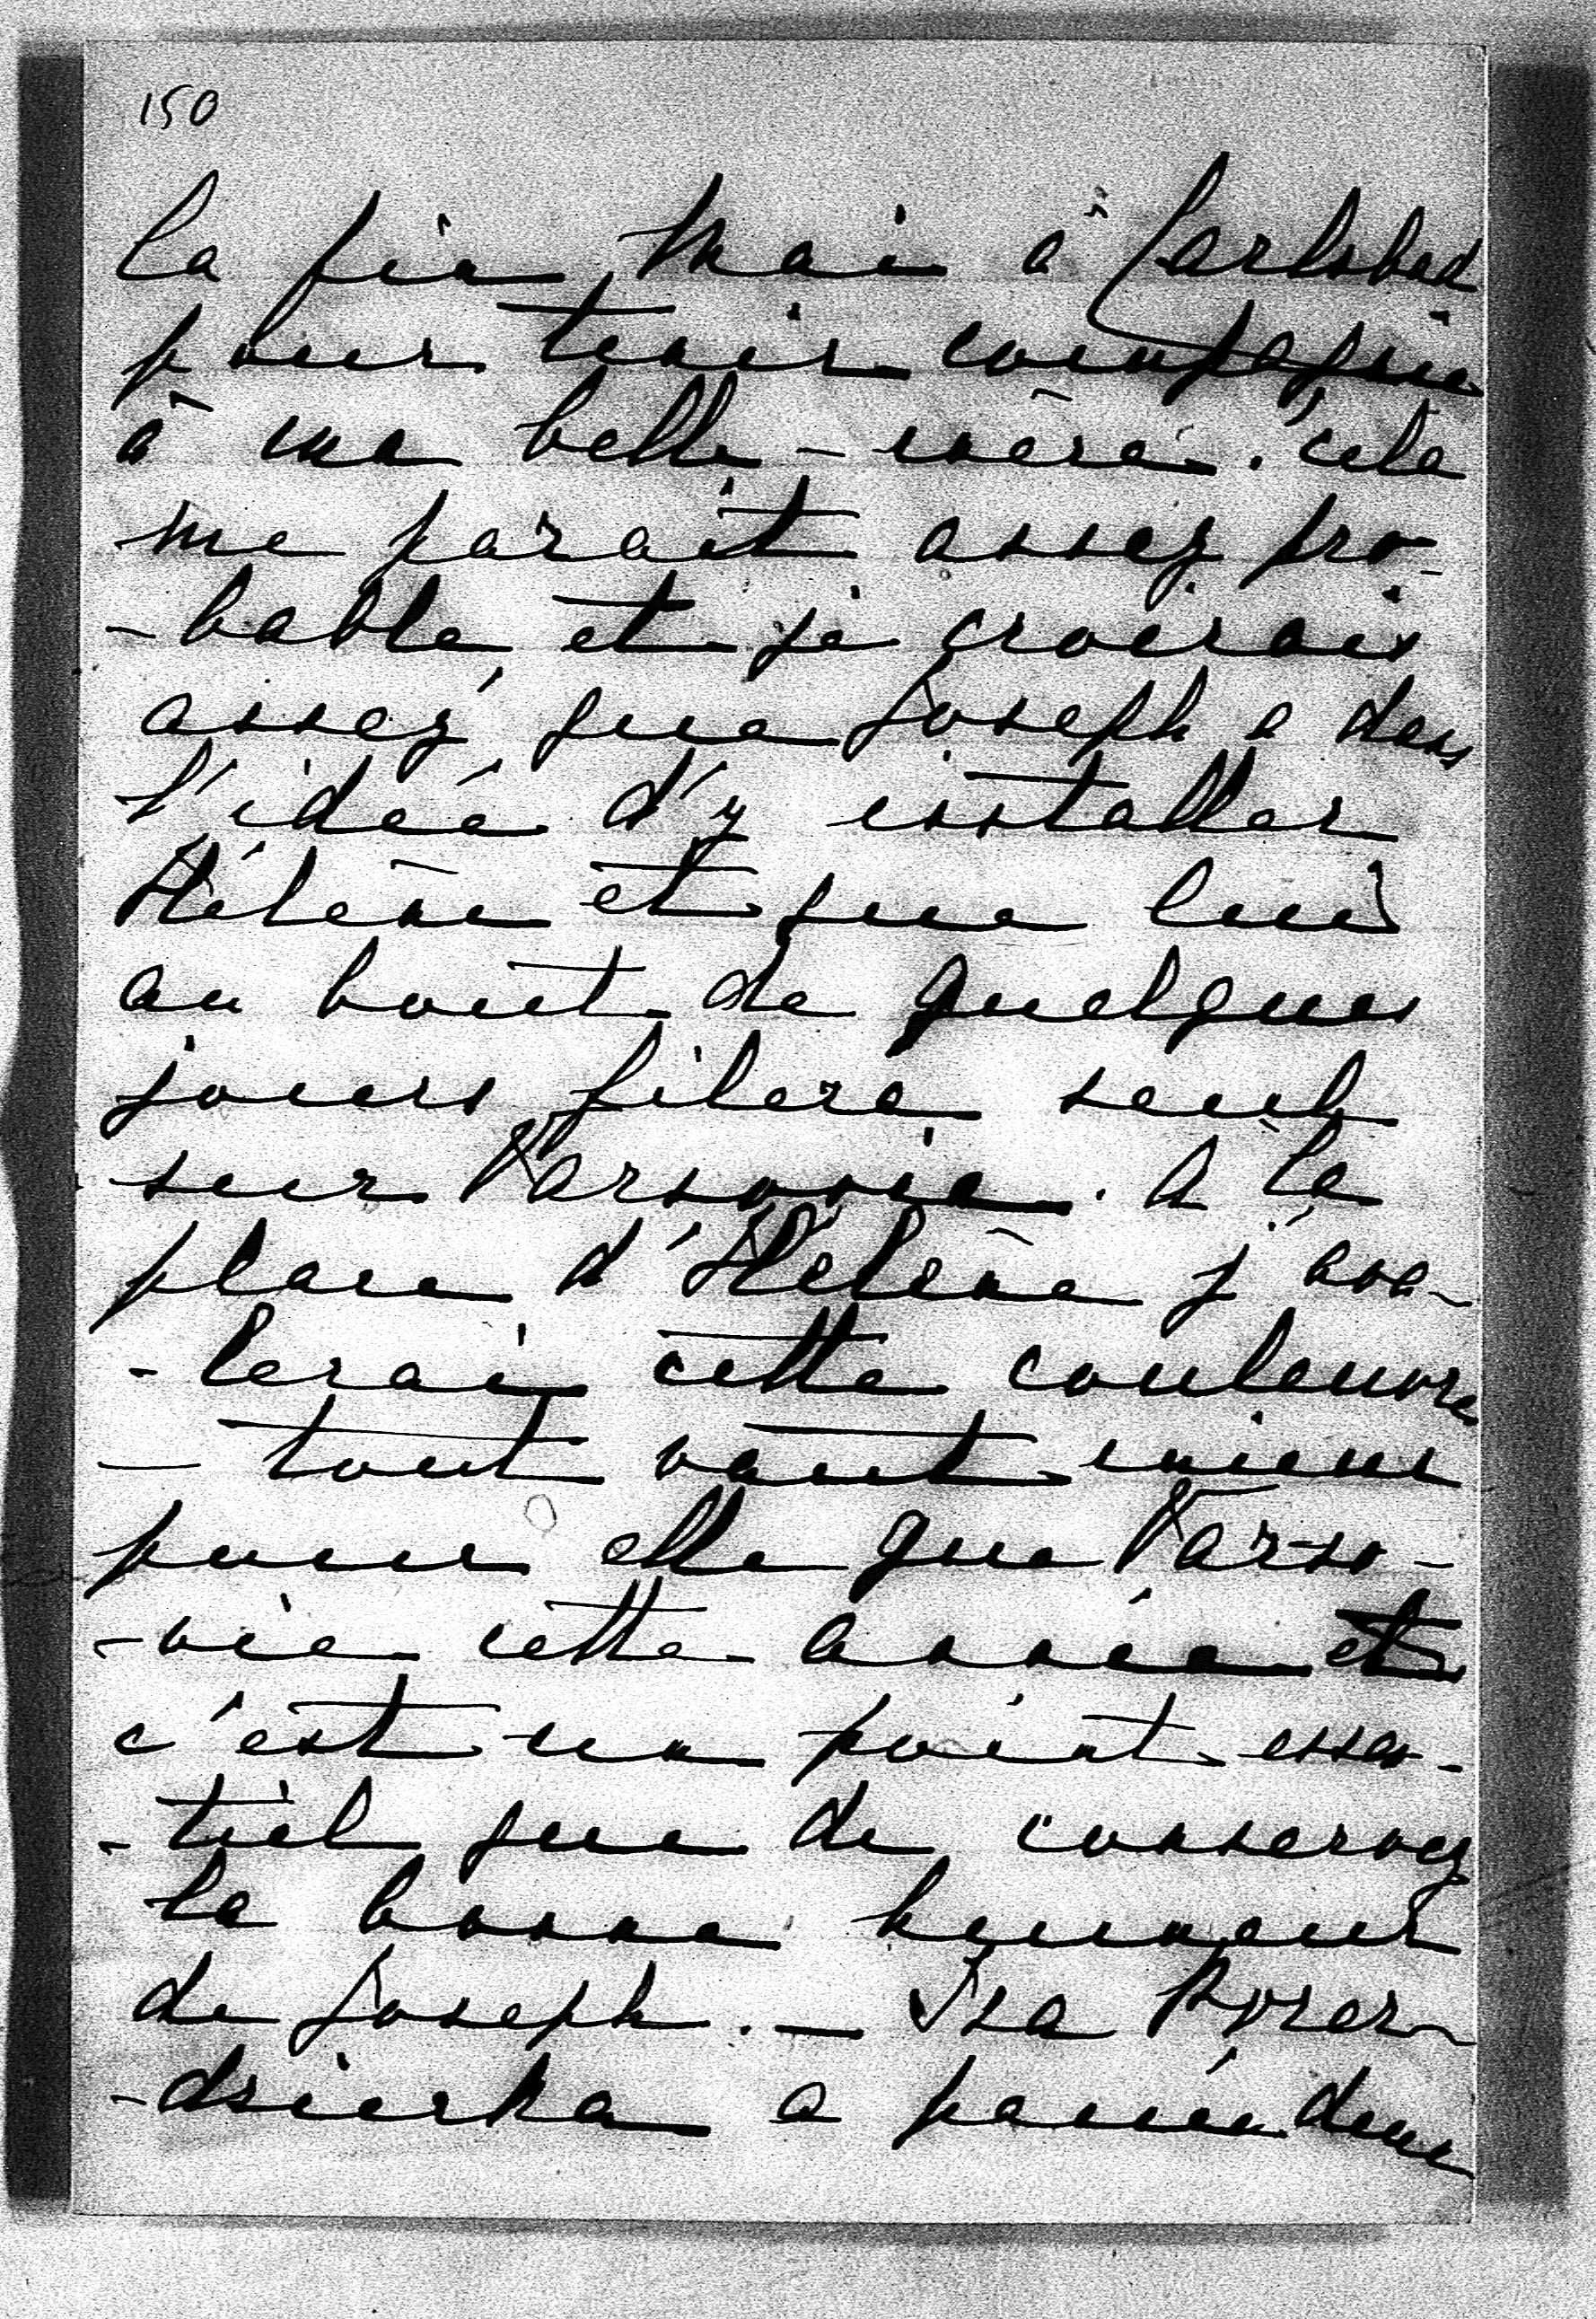 150
la fin Mai à Carlsbad
pour tenir compagnie
à ma belle-mère. cela
me paraît assez pro-
-bable, et je croirais
assez que Joseph a dans
l'idée d'y installer
Hélène et que lui
au bout de quelques
jours filera seul
sur Varsovie. A la
place d'Hélène j'ava-
-lerai cette couleuvre
— tout vaut mieux
pour elle que Varso-
-vie cette année et
c'est un point essen-
-tiel que de conserver
la bonne humeur
de Joseph. — Isa
a passé deux